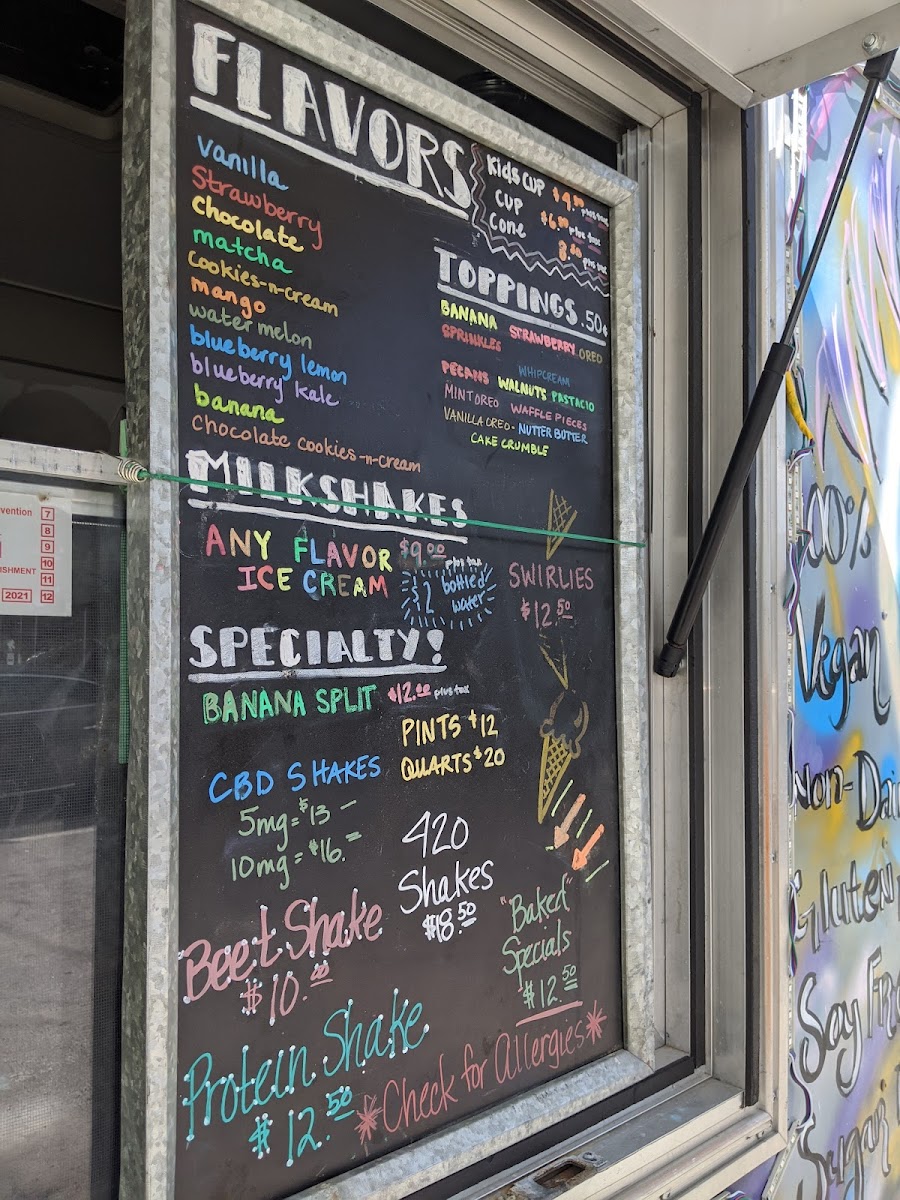 FLAVORS
vanilla
Strawberry
Chocolate
matcha
cookies-n-cream
mango
watermelon
blueberry lemon
blueberry kale
banana
Chocolate cookies-n-cream
Kids cup plus tax
CUP $6.00 plus tax
Cone 8.50 plus tax
TOPPINGS .50¢
BANANA
SPRINKLES STRAWBERRY OREO
WHIPCREAM
PECANS WALNUTS PASTACIO
MINTOREO WAFFLE PIECES
VANILLA OREO - NUTTER BUTTER
CAKE CRUMBLE
MILKSHAKES
ANY FLAVOR $9.00 plus tax
ICE CREAM
$2 bottled
water
SWIRLIES
$12.50
SPECIALTY!
BANANA SPLIT $12.00 plus tax
PINTS $12
QUARTS $20
CBD SHAKES
5mg = $13 —
10mg = $16. =
420
Shakes
$18.50
"Baked"
Specials
$12.50
Beet Shake
$10.00
Protein Shake
$12.50
*Check for Allergies*
vention 7
8
9
10
ISHMENT 11
2021 12
00%
Vegan
Non-Dai
Gluten
Soy Fre
Sugar